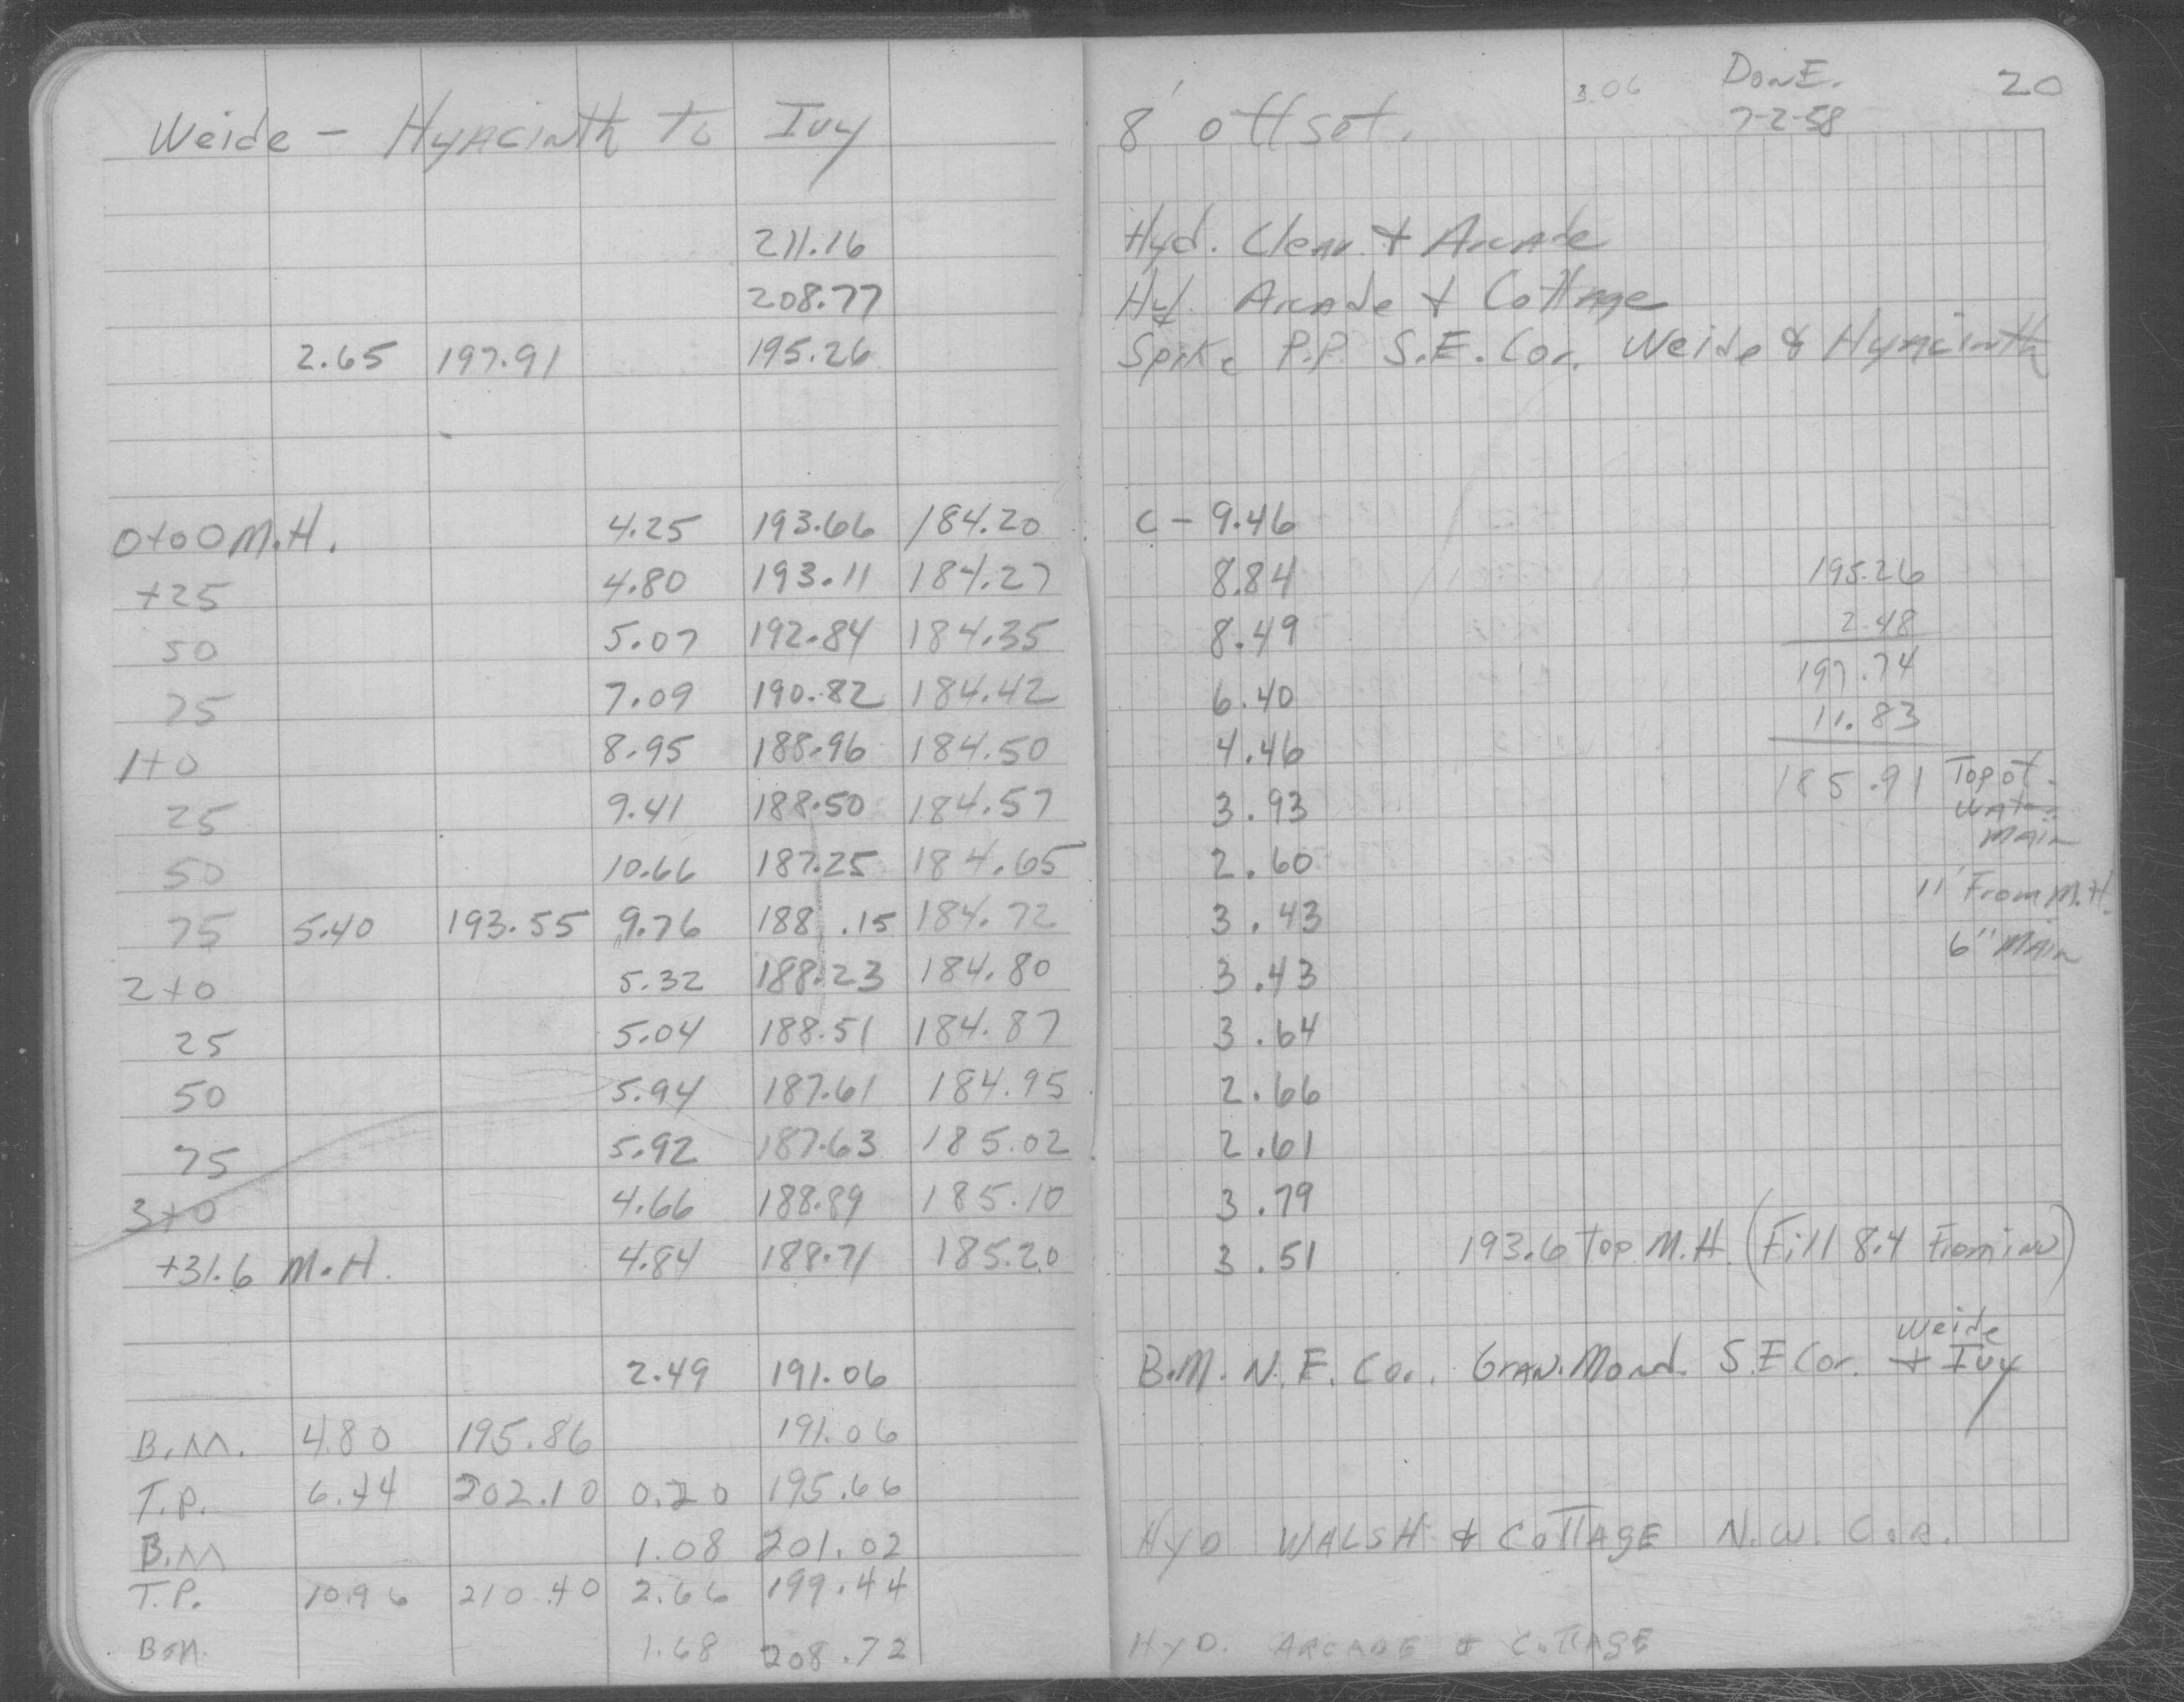 Weide - Hyacinth To Ivy
211.16
208.77
2.65 197.91 195.26
0+00 M.H. 4.25 193.66 184.20
+25 4.80 193.11 184.27
50 5.07 192.84 184.35
75 7.09 190.82 184.42
1+0 8.95 188.96 184.50
25 9.41 188.50 184.57
50 10.66 187.25 184.65
75 5.40 193.55 9.76 188.15 184.72
2+0 5.32 188.23 184.80
25 5.04 188.51 184.87
50 5.94 187.61 184.95
75 5.92 187.63 185.02
3+0 4.66 188.89 185.10
+31.6 M.H. 4.84 188.71 185.20
2.49 191.06
B.M. 4.80 195.86 191.06
T.P. 6.44 202.10 0.20 195.66
B.M 1.08 201.02
T.P. 10.96 210.40 2.66 199.44
B.M. 1.68 208.72
8' offset.
3.06
DONE.
7-2-58
20
Hyd. Clear. + Arcade
Hyd. Arcade + Cottage
Spike P.P. S.E. Cor. Weide & Hyacinth
C - 9.46
8.84
8.49
6.40
4.46
3.93
2.60
3.43
3.43
3.64
2.66
2.61
3.79
3.51
195.26
2.48
197.74
11.83
185.91 Top of
Water
Main
11' From M.H.
6" Main
193.6 Top M.H. (Fill 8.4 From inv)
B.M. N.E. Cor. Gran. Mond. S.E Cor. Weide + Ivy
HYD WALSH & COTTAGE N.W. COR.
HYD. ARCADE & COTTAGE